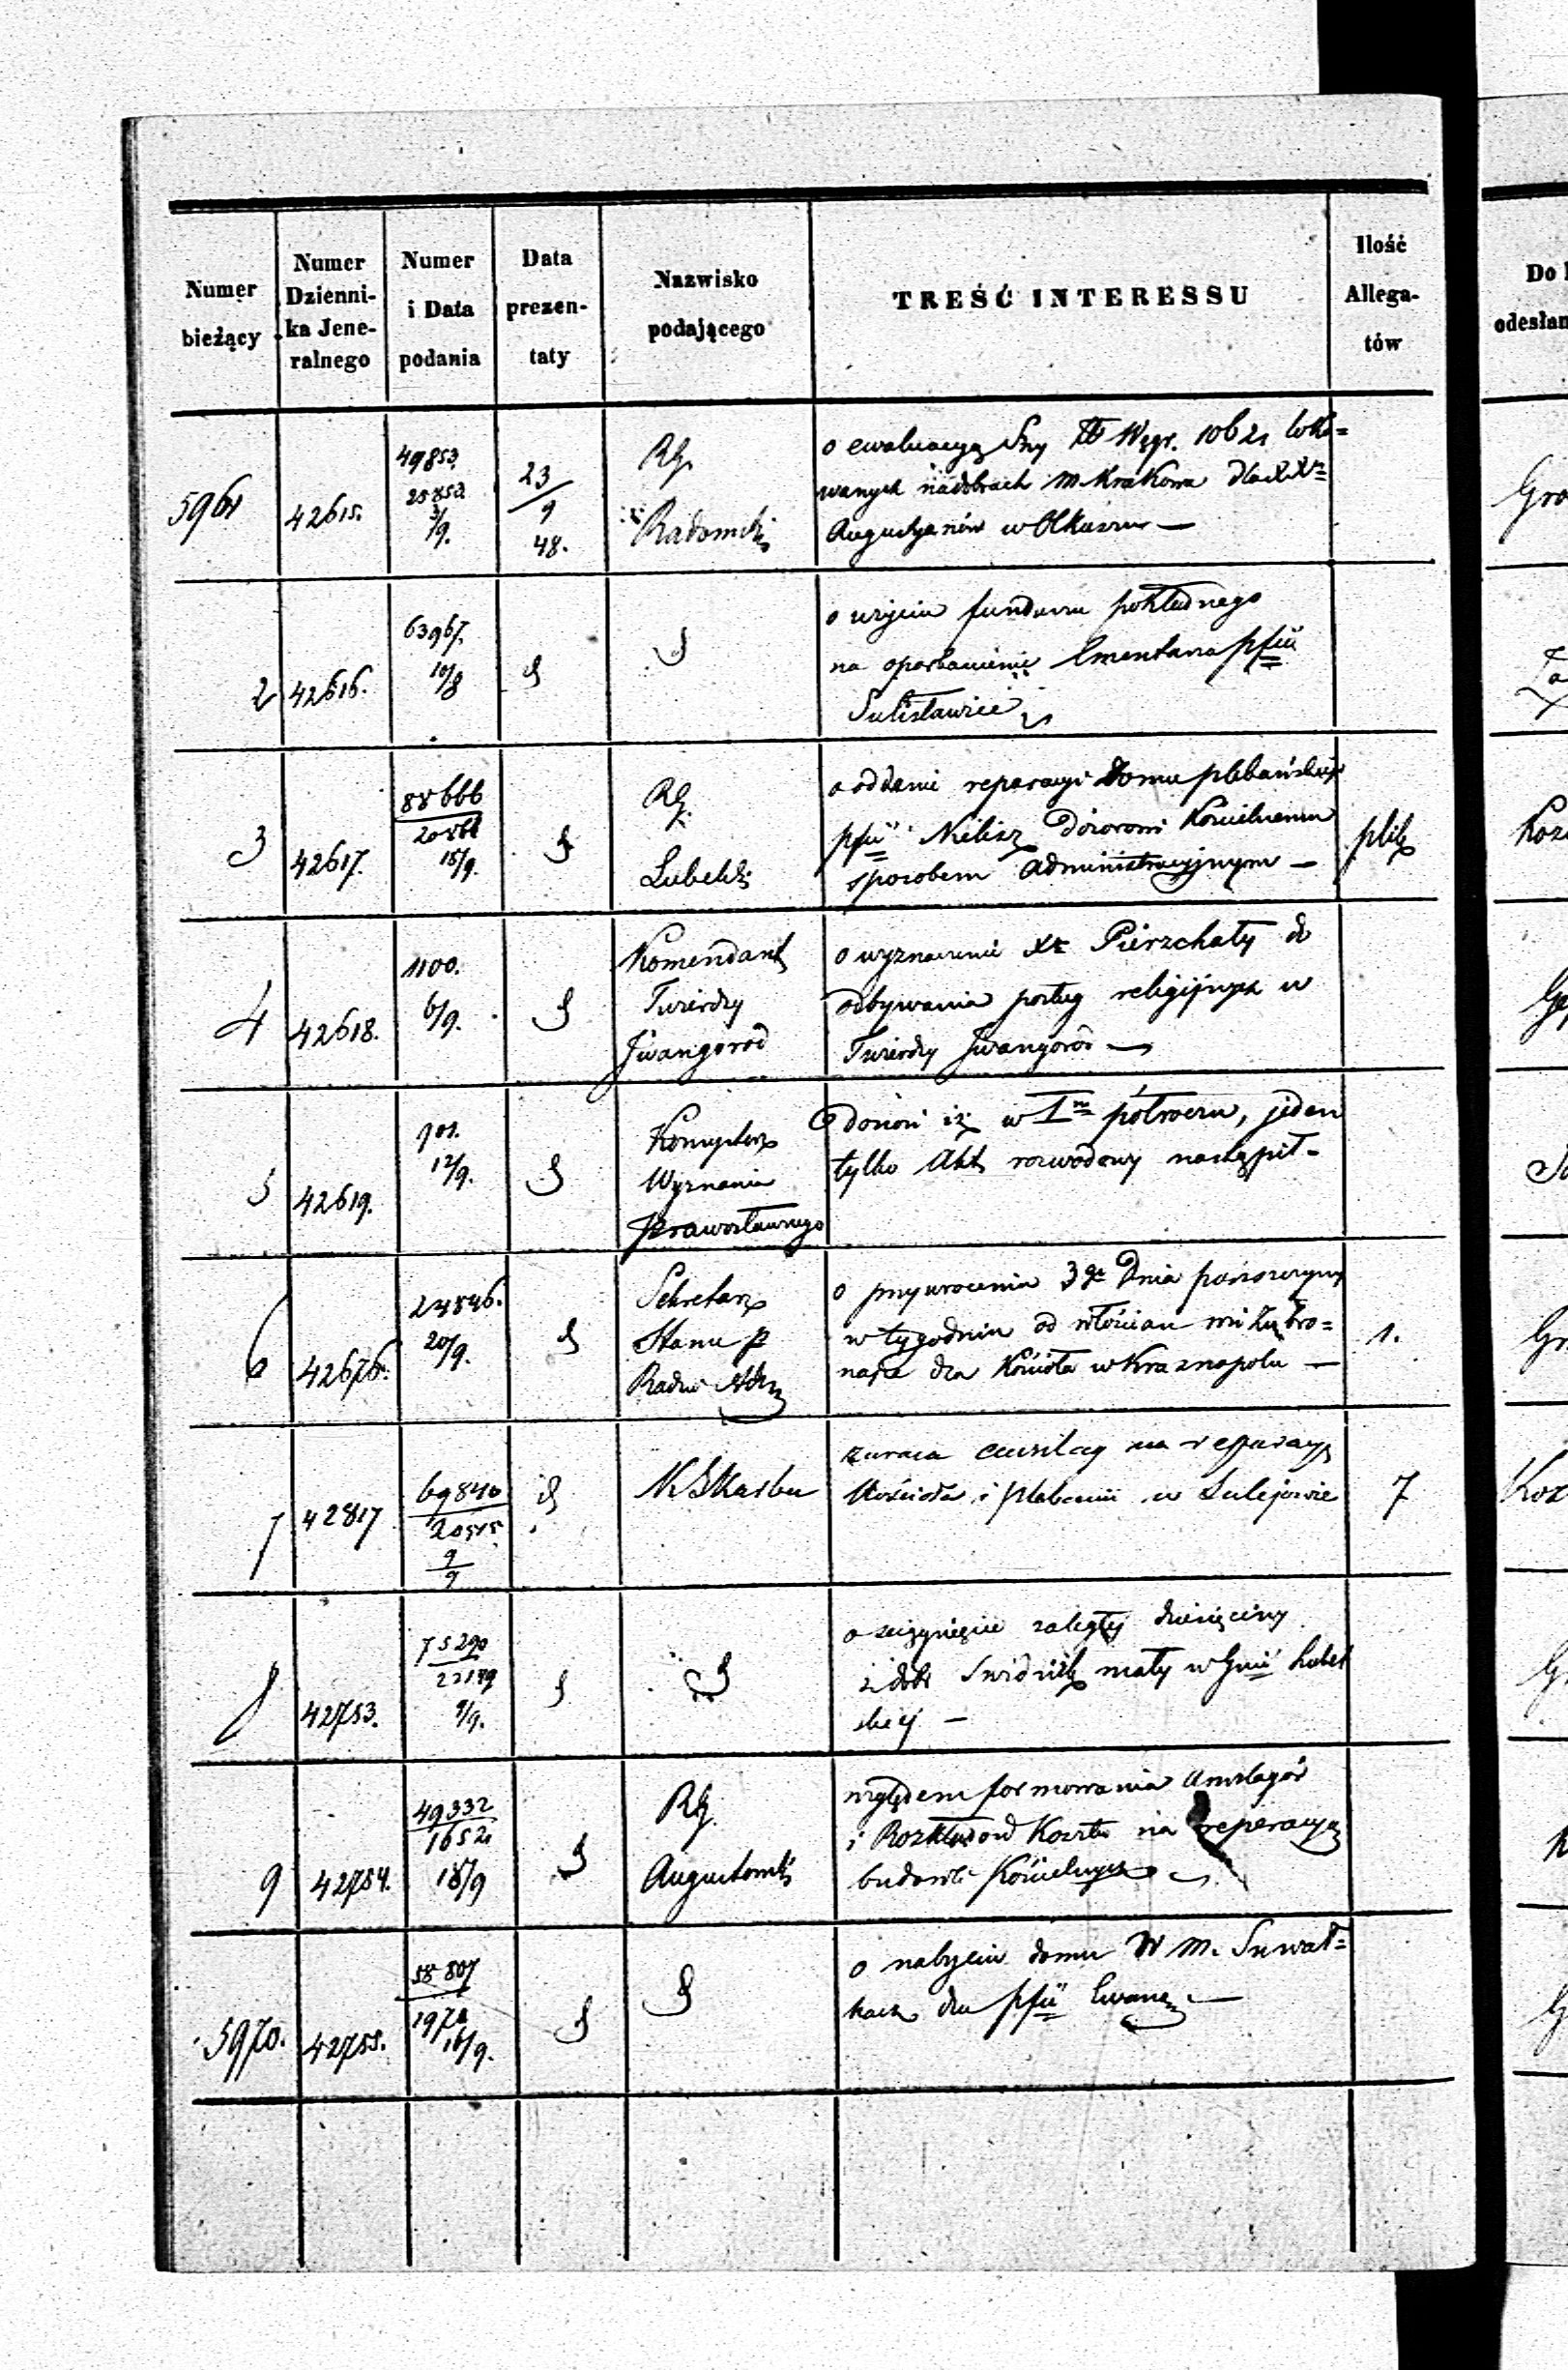 Numer
bieżący
Numer
Dzienni-
ka Jene-
ralnego
Numer
i Data
podania
Data
prezen-
taty
Nazwisko
podającego
TREŚĆ INTERESSU
Ilość
Allega-
tów
Do
odesłan
5961
42615.
49853
3/9.
23
9
48.
RG.
Radomski
o ewaluacyą Sny # Węgr. 106 21 loko=
wanych na dobrach m. Krakowa dla
Augustyanów w Olkuszu —
2
42616.
63967.
10/8
o użyciu funduszu pokładnego
na oparkanienie Cmentarza pfii
Sulisławice
3
42617.
88666
15/9.
RG.
Lubelski
o oddanie reparacyi Domu plebańskiego
pfii Nielisz Dozorowi Kościelnemu
sposobem administracyjnym —
plik
4
42618.
1100.
6/9.
Komendant
Twierdzy
Iwangorod
o wyznaczenie Xa Pierzchały do
odbywania posług religijnych w
Twierdzy Iwangorod —
5
42619.
701.
12/9.
Konsystorz
Wyznania
Prawosławnego
donosi iż w I m półroczu, jeden
tylko Akt rozwodowy nastąpił -
6
42676.
24846.
20/9.
Sekretarz
Stanu p
Radzie Adm
o przywrocenia 3go Dnia pańszczyzny
w tygodniu od włościan wsi Żubro=
najcie dla Kościoła w Krasnopolu —
1.
7
42817
69840
20515
9
9
K S Karbu
zwraca anszlag na reparacyę
Kościoła i plebanii w Sulejowie
7
8
42753.
75290
22179
9/9.
o ściągnięcie zaległej dziesięciny
z dóbr Swidnik mały w Gnii Lubel
skiej —
9
42754.
49332
1652
18/9
RG.
Augustowski
względem formowania Anszlagów
i Rozkładów Kosztu na reperacyą
budowli Kościelnych
5970.
42755.
58807
1972
16/9.
o nabyciu domu W m. Suwał=
kach dla pfii Ewang. —